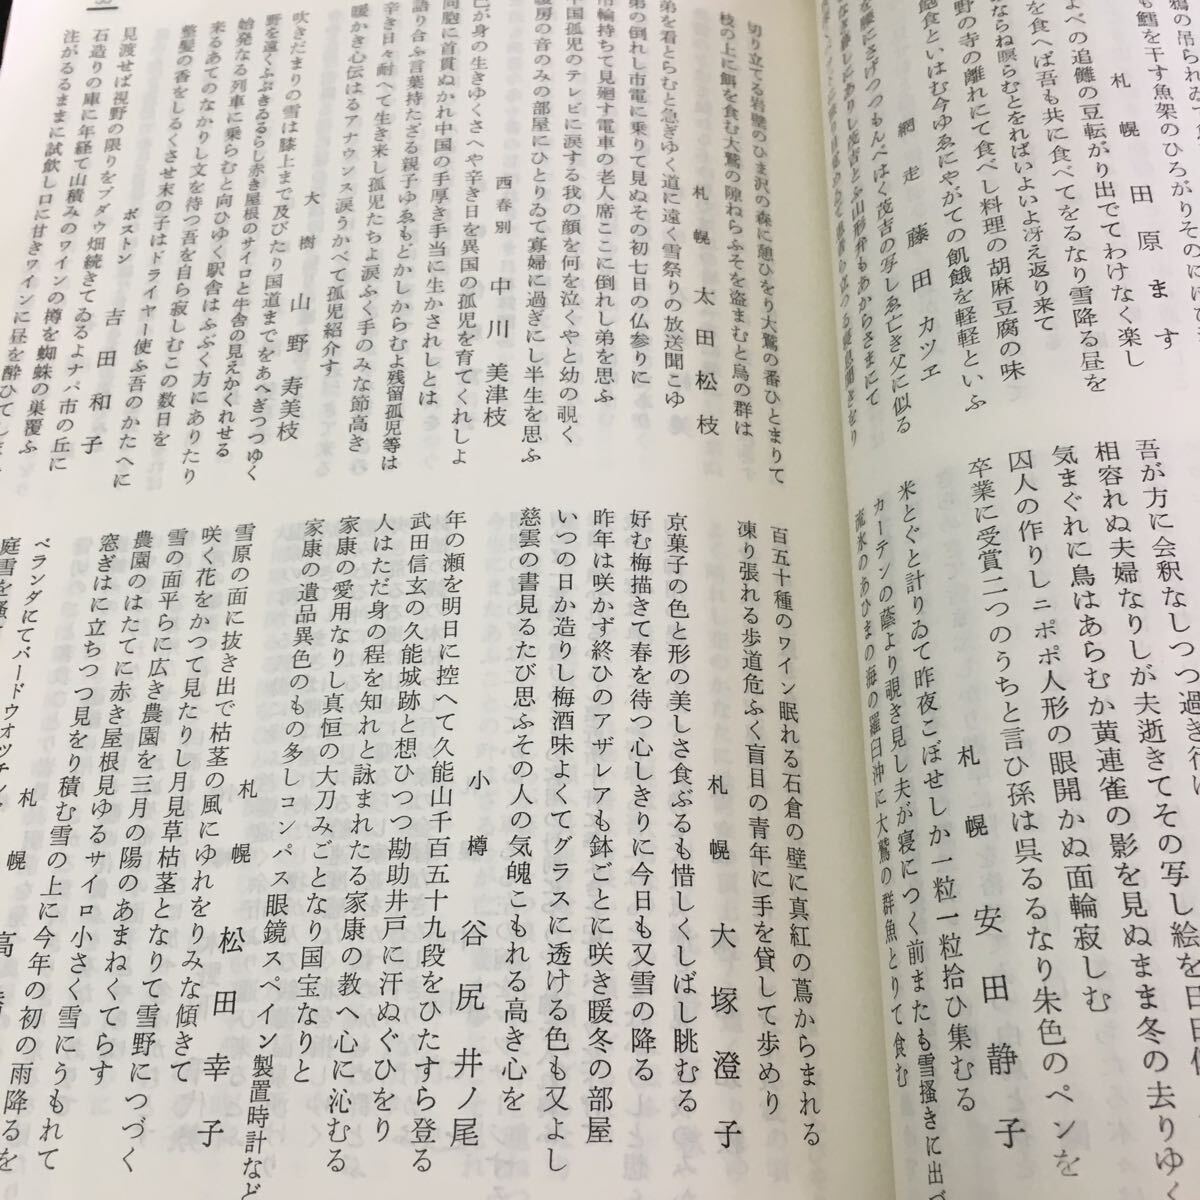 鴉の吊られゐて
も鱈を干す魚架のひろがりその
札幌　田原ます
よべの追儺の豆転がり出でてわけなく楽し
を食べば吾も共に食べてをるなり雪降る昼を
ならね瞑らむとをればいよいよ冴え返り来て
野の寺の離れにて食べし料理の胡麻豆腐の味
飽食といはむ今ゆゑにやがての飢餓を軽軽といふ
網走　藤田カツヱ
を腰にさげつつもんぺはく茂吉の写しゑ亡き父に似る
吾が方に会釈なしつつ過ぎ行
相容れぬ夫婦なりしが夫逝きてその写し絵を
気まぐれに鳥はあらむか黄連雀の影を見ぬまま冬の去りゆく
囚人の作りしニポポ人形の眼開かぬ面輪寂しむ
卒業に受賞二つのうちと言ひ孫は呉るるなり朱色のペンを
札幌　安田静子
米とぐと計りゐて昨夜こぼせしか一粒一粒拾ひ集むる
カーテンの蔭より覗き見し夫が寝につく前またも雪掻きに出づ
流氷のあひまの海の羅臼沖に大鷲の群魚とりて食む
切り立てる岩壁のひま沢の森に憩ひをり大鷲の番ひとまりて
枝の上に餌を食む大鷲の隙ねらふそを盗まむと烏の群は
札幌　太田松枝
弟を看とらむと急ぎゆく道に遠く雪祭りの放送聞こゆ
弟の倒れし市電に乗りて見ぬその初七日の仏参りに
指輪持ちて見廻す電車の老人席ここに倒れし弟を思ふ
中国孤児のテレビに涙する我の顔を何を泣くやと幼の覗く
暖房の音のみの部屋にひとりゐて寡婦に過ぎにし半生を思ふ
西春別　中川美津枝
己が身の生きゆくさへや辛き日を異国の孤児を育てくれしよ
同胞に首貫ぬかれ中国の手厚き手当に生かされしとは
語り合ふ言葉持たざる親子ゆゑもどかしからむよ残留孤児等は
辛き日々耐へて生き来し孤児たちよ涙ふく手のみな節高き
暖かき心伝はるアナウンス涙うかべて孤児紹介す
大樹　山野寿美枝
吹きだまりの雪は膝上まで及びたり国道までをあへぎつつゆく
野を遠くふぶきゐるらし赤き屋根のサイロと牛舎の見えかくれせる
始発なる列車に乗らむと向ひゆく駅舎はふぶく方にありたり
来るあてのなかりし文を待つ吾を自ら寂しむこの数日を
整髪の香をしるくさせ末の子はドライヤー使ふ吾のかたへに
ボストン　吉田和子
見渡せば視野の限りをブダウ畑続きてゐるよナパ市の丘に
石造りの庫に年経て山積みのワインの樽を蜘蛛の巣覆ふ
注がるるままに試飲し口に甘きワインに昼を酔ひてしま
百五十種のワイン眠れる石倉の壁に真紅の蔦からまれる
凍り張れる歩道危ふく盲目の青年に手を貸して歩めり
札幌　大塚澄子
京菓子の色と形の美しさ食ぶるも惜しくしばし眺むる
好む梅描きて春を待つ心しきりに今日も又雪の降る
昨年は咲かず終ひのアザレアも鉢ごとに咲き暖冬の部屋
いつの日か造りし梅酒味よくてグラスに透ける色も又よし
慈雲の書見るたび思ふその人の気魄こもれる高き心を
小樽　谷尻井ノ尾
年の瀬を明日に控へて久能山千百五十九段をひたすら登る
武田信玄の久能城跡と想ひつつ勘助井戸に汗ぬぐひをり
人はただ身の程を知れと詠まれたる家康の教へ心に沁むる
家康の愛用なりし真恒の大刀みごとなり国宝なりと
家康の遺品異色のもの多しコンパス眼鏡スペイン製置時計など
札幌　松田幸子
雪原の面に抜き出で枯茎の風にゆれをりみな傾きて
咲く花をかつて見たりし月見草枯茎となりて雪野につづく
雪の面平らに広き農園を三月の陽のあまねくてらす
農園のはたてに赤き屋根見ゆるサイロ小さく雪にうもれて
窓ぎはに立ちつつ見をり積む雪の上に今年の初の雨降るを
札幌　高
ベランダにてバードウオッチン
庭雪を